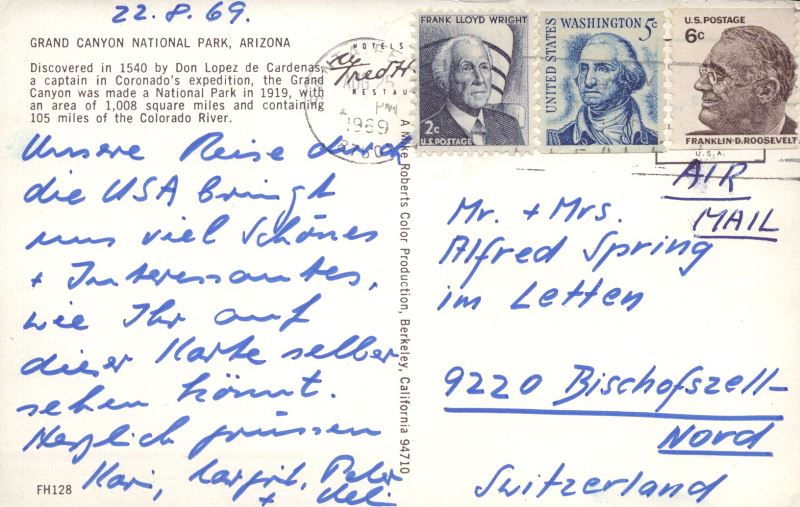 22.8.69.
GRAND CANYON NATIONAL PARK, ARIZONA
Discovered in 1540 by Don Lopez de Cardenas,
a captain in Coronado's expedition, the Grand
Canyon was made a National Park in 1919, with
an area of 1,008 square miles and containing
105 miles of the Colorado River.
Unsere Reise durch
die USA bringt
uns viel Schönes
+ Interessantes,
wie Ihr auf
dieser Karte selber
sehen könnt.
Herzlich grüssen
Kari, Margrit, Peter
+ Ueli
FH128
HOTELS
Fred H
RESTAU
PM
1969
A Mike Roberts Color Production, Berkeley, California 94710
FRANK LLOYD WRIGHT
2c
U.S. POSTAGE
UNITED STATES
WASHINGTON 5c
U.S. POSTAGE
6c
FRANKLIN D. ROOSEVELT
U.S.A.
AIR
MAIL
Mr. + Mrs.
Alfred Spring
im Letten
9220 Bischofszell-
Nord
Switzerland